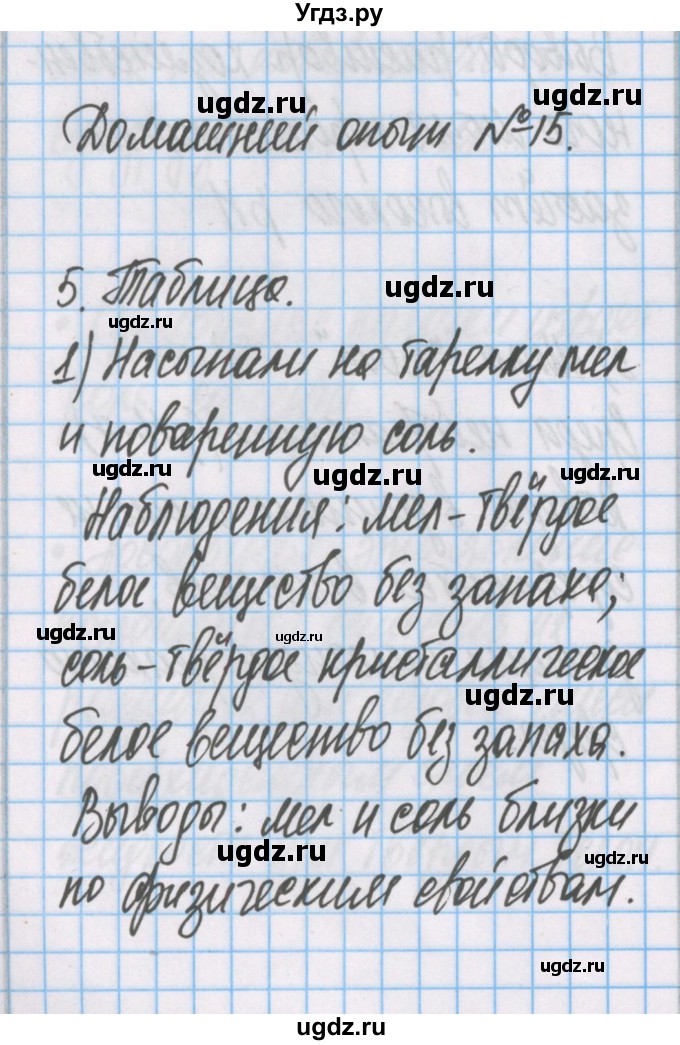 Угдз.ру
ugdz.ru ugdz.ru
Домашний опыт №15.
ugdz.ru ugdz.ru
5. Таблица.
ugdz.ru ugdz.ru
1) Насыпали на тарелку мел
и поваренную соль.
ugdz.ru ugdz.ru ugdz.ru
Наблюдения: мел – твёрдое
белое вещество без запаха;
ugdz.ru ugdz.ru
соль – твёрдое кристаллическое
ugdz.ru
белое вещество без запаха.
Выводы: мел и соль близки
ugdz.ru ugdz.ru
по физическим свойствам.
ugdz.ru
ugdz.ru